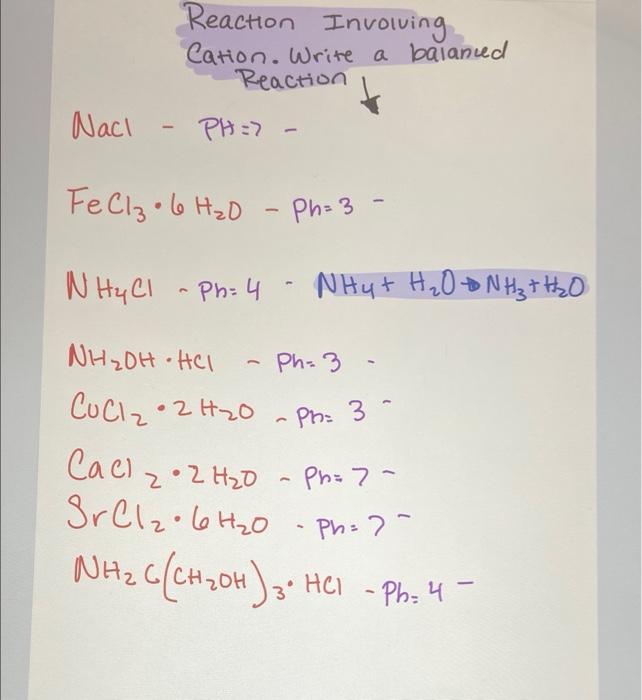 Reaction Involving
Cation. Write a balanced
Reaction ↓
NaCl - PH=7 -
FeCl₃ • 6 H₂O - Ph= 3 -
NH₄Cl - Ph= 4 - NH₄+ H₂O → NH₃ + H₂O
NH₂OH • HCl - Ph= 3 -
CuCl₂ • 2 H₂O - Ph= 3 -
CaCl₂ • 2 H₂O - Ph= 7 -
SrCl₂ • 6 H₂O - Ph= 7 -
NH₂C(CH₂OH)₃ • HCl - Ph= 4 -